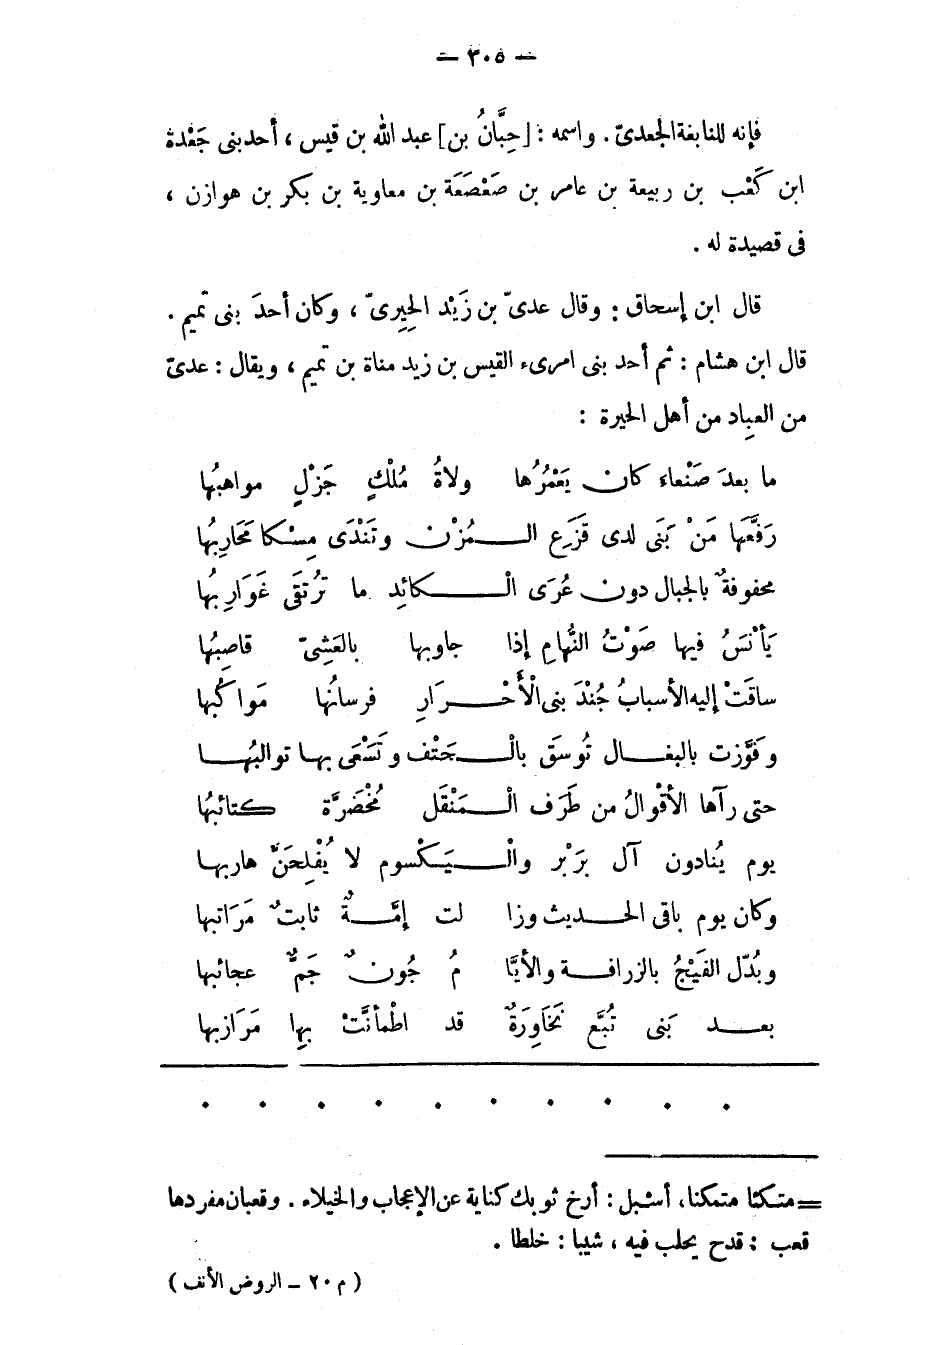 — ٣٠٥ —
فإنه للنابغة الجعدىّ . واسمه : [ حِبَّانُ بن ] عبد الله بن قيس ، أحد بنى جَعْدة
ابن كَعْب بن ربيعة بن عامر بن صَعْصَعَة بن معاوية بن بكر بن هوازن ،
فى قصيدة له .
قال ابن إسحاق : وقال عدىّ بن زَيْد الحِيرىّ ، وكان أحدَ بنى تميم .
قال ابن هشام : ثم أحد بنى امرىء القيس بن زيد مناة بن تميم ، ويقال : عدىّ
من العِباد من أهل الحيرة :
ما بعدَ صَنْعاء كان يَعْمُرُها ولاةُ مُلْكٍ جَزْلٍ مواهبُها
رَفَّعَها مَنْ بَنَى لدى قَزَعِ الــمُزْن وتَنْدَى مِسْكا مَحَارِبُها
محفوفةٌ بالجبال دون عُرَى الْــكائدِ ما تُرتَقَى غَوَارِبُها
يَأْنَسُ فيها صَوْتُ النُّهامِ إذا جاوبها بالعَشِىّ قاصِبُها
ساقَتْ إليه الأسبابُ جُنْدَ بنى الْأَحْــرَارِ فرسانُها مَواكبُها
وفَوَّزت بالبغــال تُوسَق بالْــحَتْف وتَسْعَى بها توالبُهــا
حتى رآها الأقْوالُ من طَرَف الْــمَنْقَل مُخْضَرَّة كتائبُها
يوم يُنادون آل بَرْبر والْــيَكْسوم لا يُفْلِحَنَّ هاربهــا
وكان يوم باقى الحــديث وزا لت إمَّــةٌ ثابتٌ مَرَاتبها
وبُدّل الفَيْجُ بالزرافــة والأيَّا مُ جُونٌ جَمٌّ عجائبها
بعــد بَنى تُبَّع نَخَاوِرَةٌ قد اطْمأنَّتْ بِها مَرَازبها
. . . . . . . . . .
= متكئا متمكنا، أسْبل : أرخ ثوبك كناية عن الإعجاب والخيلاء . وقعبان مفردها
قعب : قدح يحلب فيه ، شيبا : خلطا .
( م ٢٠ — الروض الأنف )